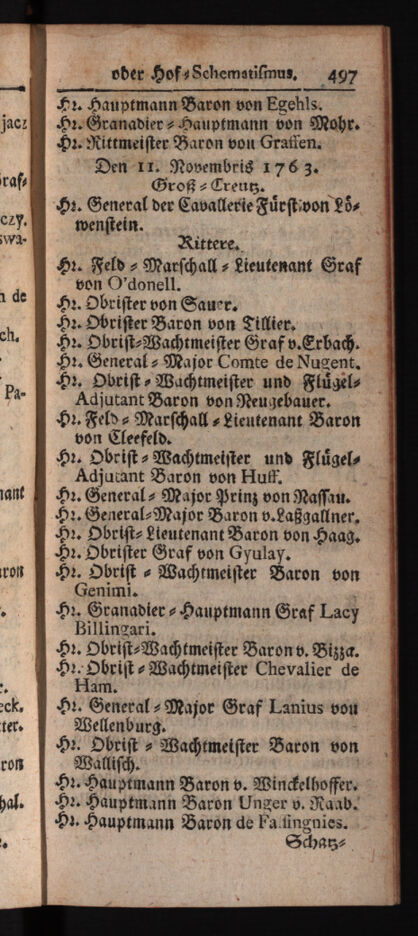 oder Hof-Schematismus. 497
Hr. Hauptmann Baron von Egehls.
Hr. Granadier-Hauptmann von Mohr.
Hr. Rittmeister Baron von Graffen.
Den 11. Novembris 1763.
Groß-Creutz.
Hr. General der Cavallerie Fürst von Lö-
wenstein.
Rittere.
Hr. Feld-Marschall-Lieutenant Graf
von O'donell.
Hr. Obrister von Sauer.
Hr. Obrister Baron von Tillier.
Hr. Obrist-Wachtmeister Graf v. Erbach.
Hr. General-Major Comte de Nugent.
Hr. Obrist-Wachtmeister und Flügel-
Adjutant Baron von Neugebauer.
Hr. Feld-Marschall-Lieutenant Baron
von Cleefeld.
Hr. Obrist-Wachtmeister und Flügel-
Adjutant Baron von Huff.
Hr. General-Major Prinz von Nassau.
Hr. General-Major Baron v. Laßgallner.
Hr. Obrist-Lieutenant Baron von Haag.
Hr. Obrister Graf von Gyulay.
Hr. Obrist-Wachtmeister Baron von
Genimi.
Hr. Granadier-Hauptmann Graf Lacy
Billingari.
Hr. Obrist-Wachtmeister Baron v. Bizza.
Hr. Obrist-Wachtmeister Chevalier de
Ham.
Hr. General-Major Graf Lanius von
Wellenburg.
Hr. Obrist-Wachtmeister Baron von
Wallisch.
Hr. Hauptmann Baron v. Winckelhoffer.
Hr. Hauptmann Baron Unger v. Raab.
Hr. Hauptmann Baron de Fassingnies.
Schatz-